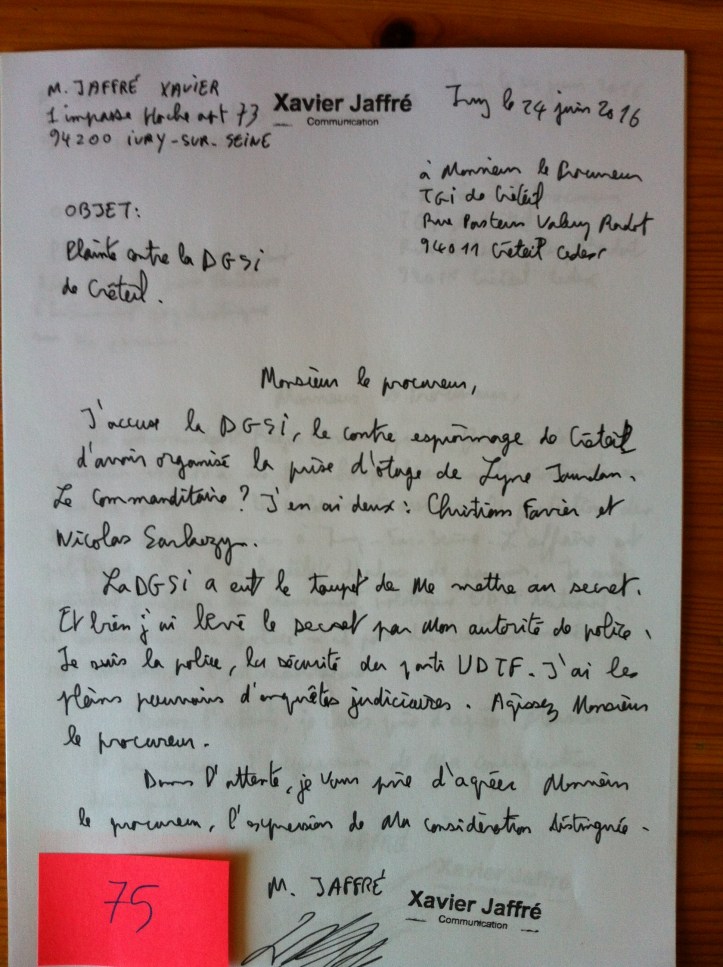 M. JAFFRÉ XAVIER
1 impasse Hoche art 73
94200 IVRY-SUR-SEINE
Xavier Jaffré
Communication
Ivry le 24 juin 2016
à Monsieur le Procureur
TGI de Créteil
Rue Pasteur Valery Radot
94011 Créteil Cedex
OBJET:
Plainte contre la DGSi
de Créteil.
Monsieur le procureur,
J'accuse la DGSi, le contre espionnage de Créteil
d'avoir organisé la prise d'otage de Lyne
Le commanditaire ? J'en ai deux : Christian Favier et
Nicolas Sarkozy.
La DGSi a eut le toupet de me mettre au secret.
Et bien j'ai levé le secret par mon autorité de police.
Je suis la police, la sécurité du parti UDTF. J'ai les
pleins pouvoirs d'enquêtes judiciaires. Agissez Monsieur
le procureur.
Dans l'attente, je vous prie d'agréer Monsieur
le procureur, l'expression de ma considération distinguée.
M. JAFFRÉ
Xavier Jaffré
Communication
75